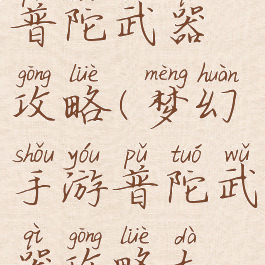 普陀武器
gōng lüè mèng huàn
攻略(梦幻
shǒu yóu pǔ tuó wǔ
手游普陀武
qì gōng lüè dà
器攻略大